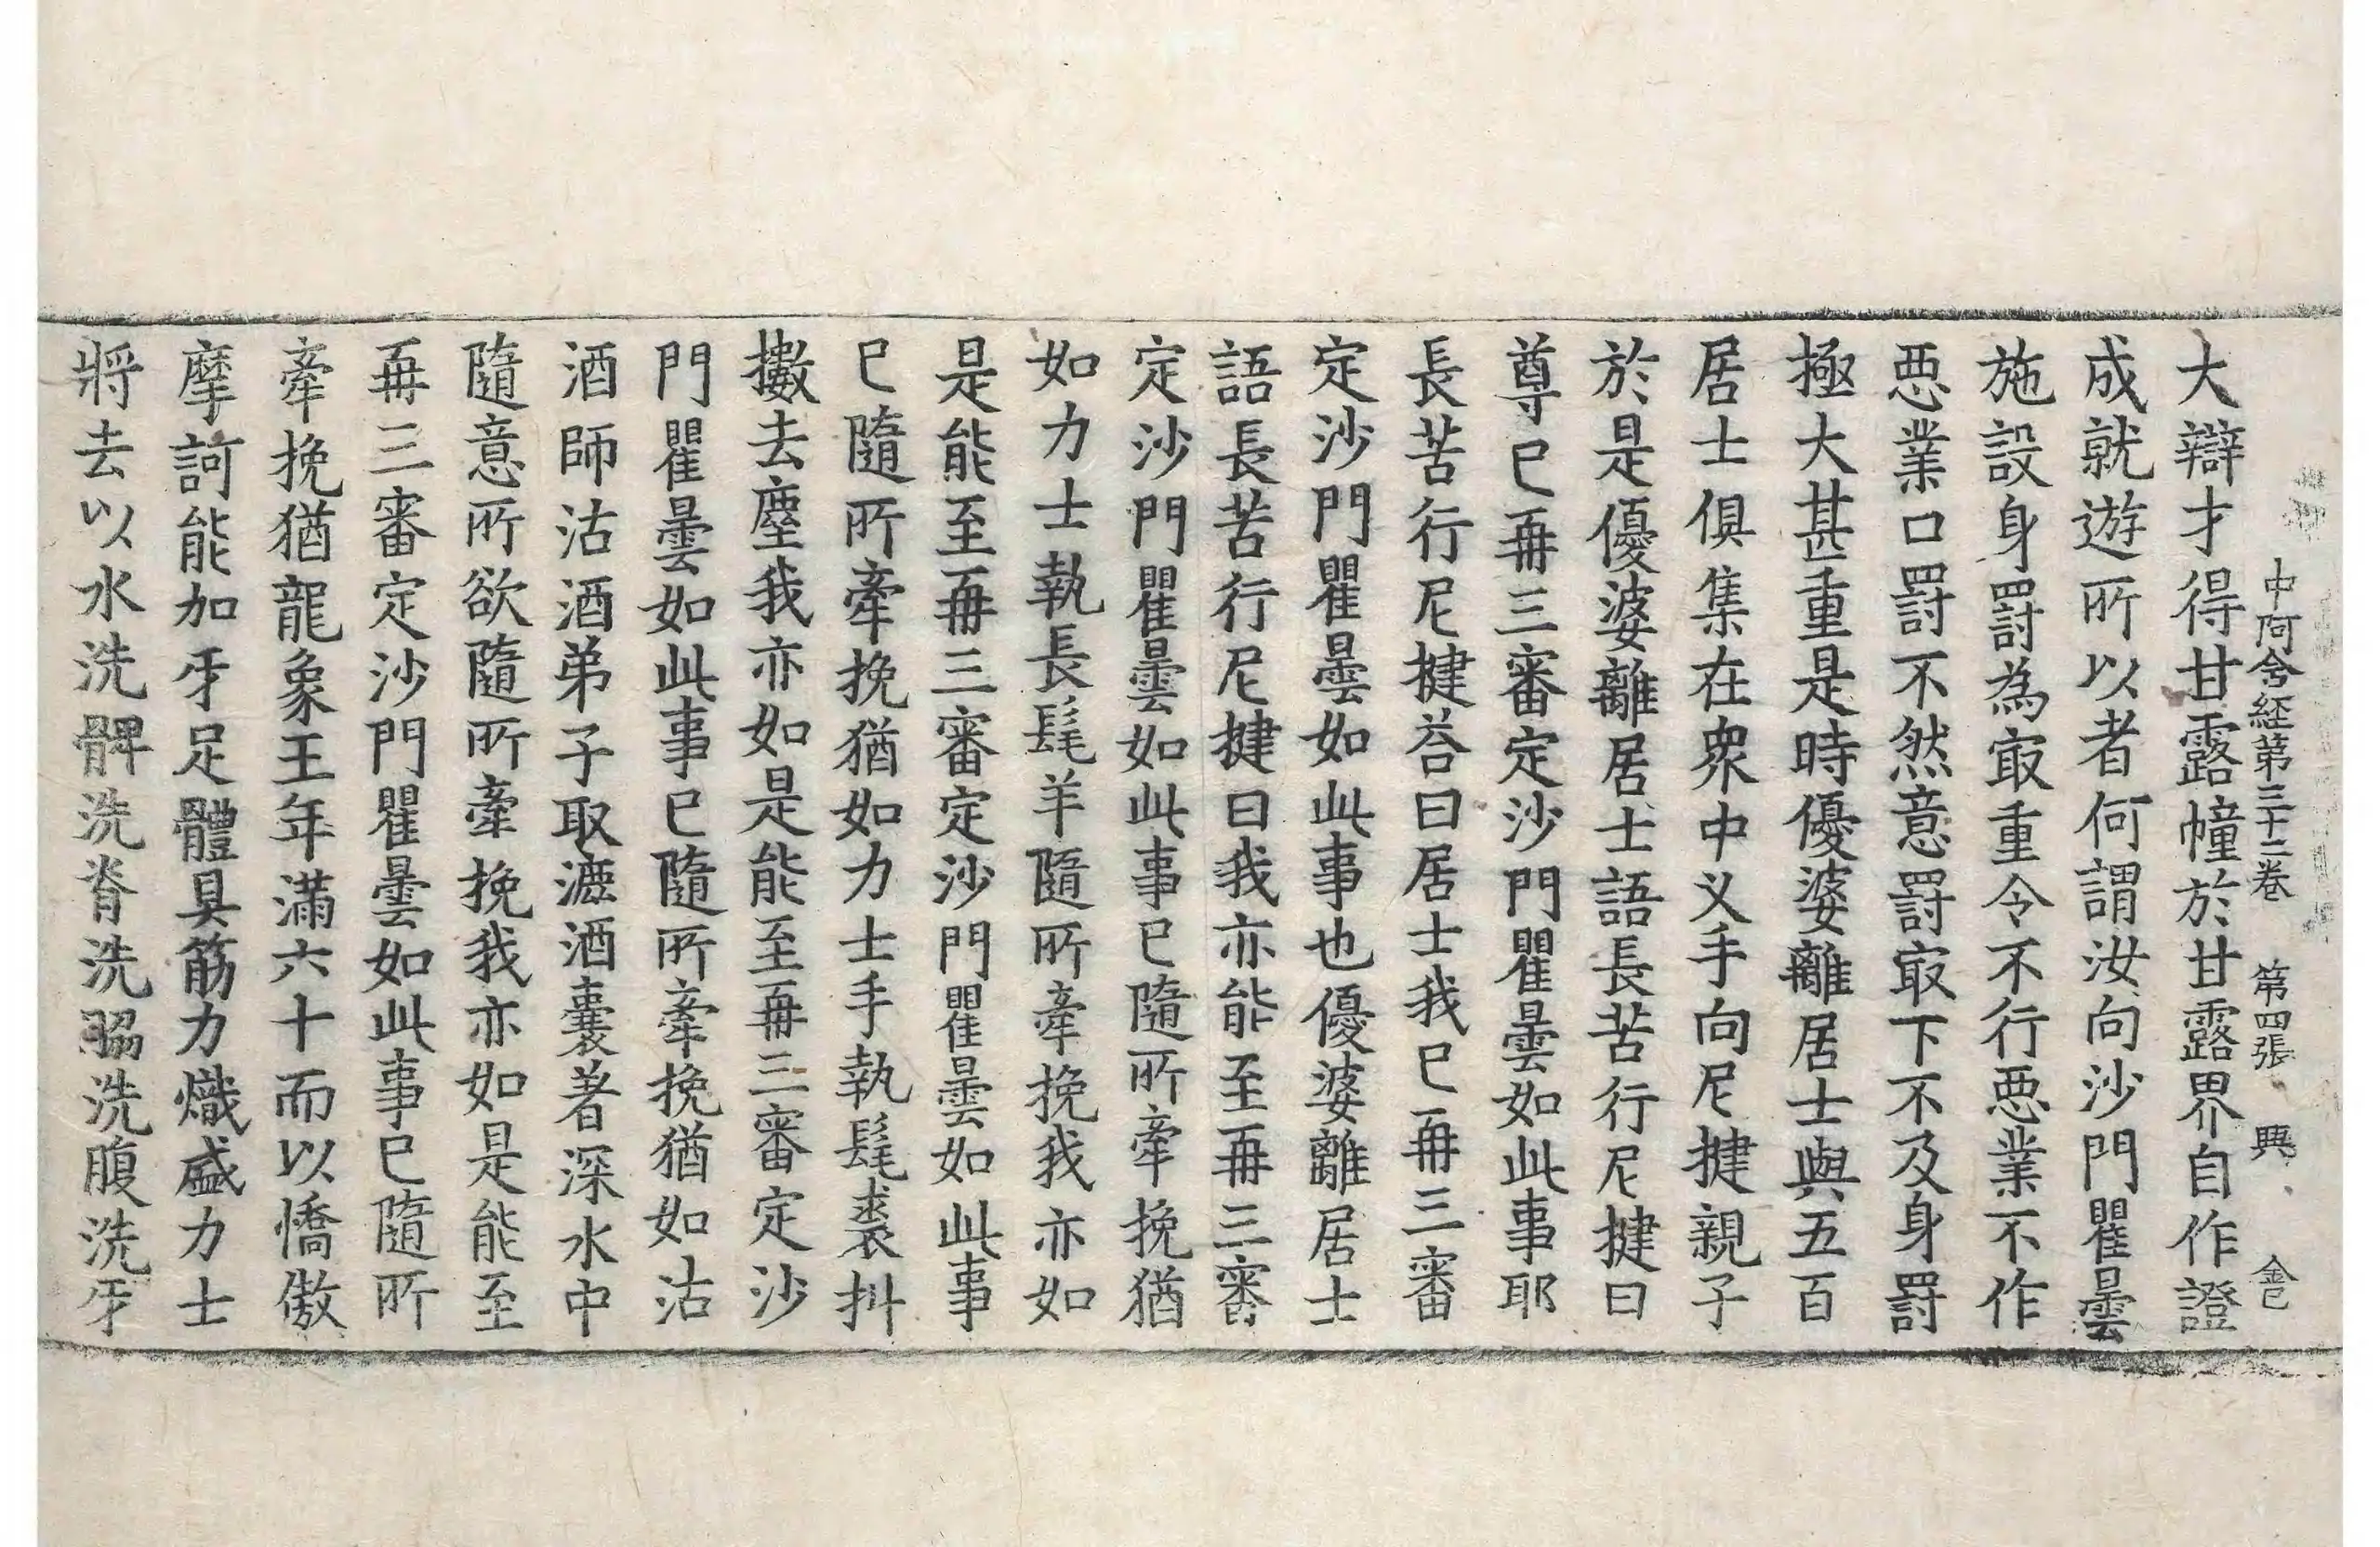 中阿含経第三十二卷 第四張 興 金已
大辯才得甘露幢於甘露界自作證
成就遊所以者何謂汝向沙門瞿曇
施設身罰為㝡重令不行悪業不作
悪業口罰不然意罰㝡下不及身罰
極大甚重是時優婆離居士與五百
居士俱集在衆中叉手向尼揵親子
於是優婆離居士語長苦行尼揵曰
尊已再三審定沙門瞿曇如此事耶
長苦行尼揵荅曰居士我已再三審
定沙門瞿曇如此事也優婆離居士
語長苦行尼揵曰我亦能至再三審
定沙門瞿曇如此事已隨所牽挽猶
如力士執長髦羊隨所牽挽我亦如
是能至再三審定沙門瞿曇如此事
已隨所牽挽猶如力士手執髦裘抖
擻去塵我亦如是能至再三審定沙
門瞿曇如此事已隨所牽挽猶如沽
酒師沽酒弟子取漉酒囊著深水中
隨意所欲隨所牽挽我亦如是能至
再三審定沙門瞿曇如此事已隨所
牽挽猶龍象王年滿六十而以憍傲
摩訶能加牙足體具筋力熾盛力士
將去以水洗髀洗脊洗脇洗腹洗牙